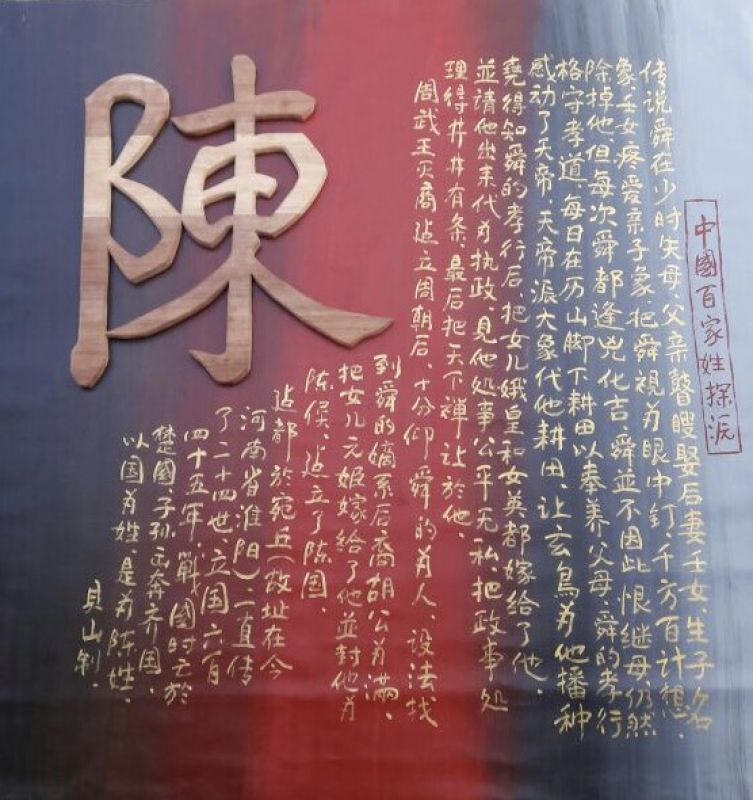 中國百家姓探源
传说舜在少时失母、父亲瞽瞍娶后妻壬女、生子名
象、壬女疼爱亲子象、把舜视为眼中钉、千方百计想
除掉他、但每次舜都逢凶化吉、舜並不因此恨继母、仍然
格守孝道、每日在历山脚下耕田以奉养父母、舜的孝行
感动了天帝、天帝派大象代他耕田、让玄鸟为他播种、
堯得知舜的孝行后、把女儿娥皇和女英都嫁给了他、
並请他出来代为执政、見他処事公平无私、把政事処
理得井井有条、最后把天下禅让於他、
周武王灭商建立周朝后、十分仰舜的为人、设法找
到舜的嫡系后裔胡公为满、
把女儿元姬嫁给了他並封他为
陈侯、建立了陈国、
建都於宛丘(故址在今
河南省淮阳)、一直传
了二十四世、立国六百
四十五年、戰國时亡於
楚國、子孙出奔齐国、
以国为姓、是为陈姓、
貝山制、
陳